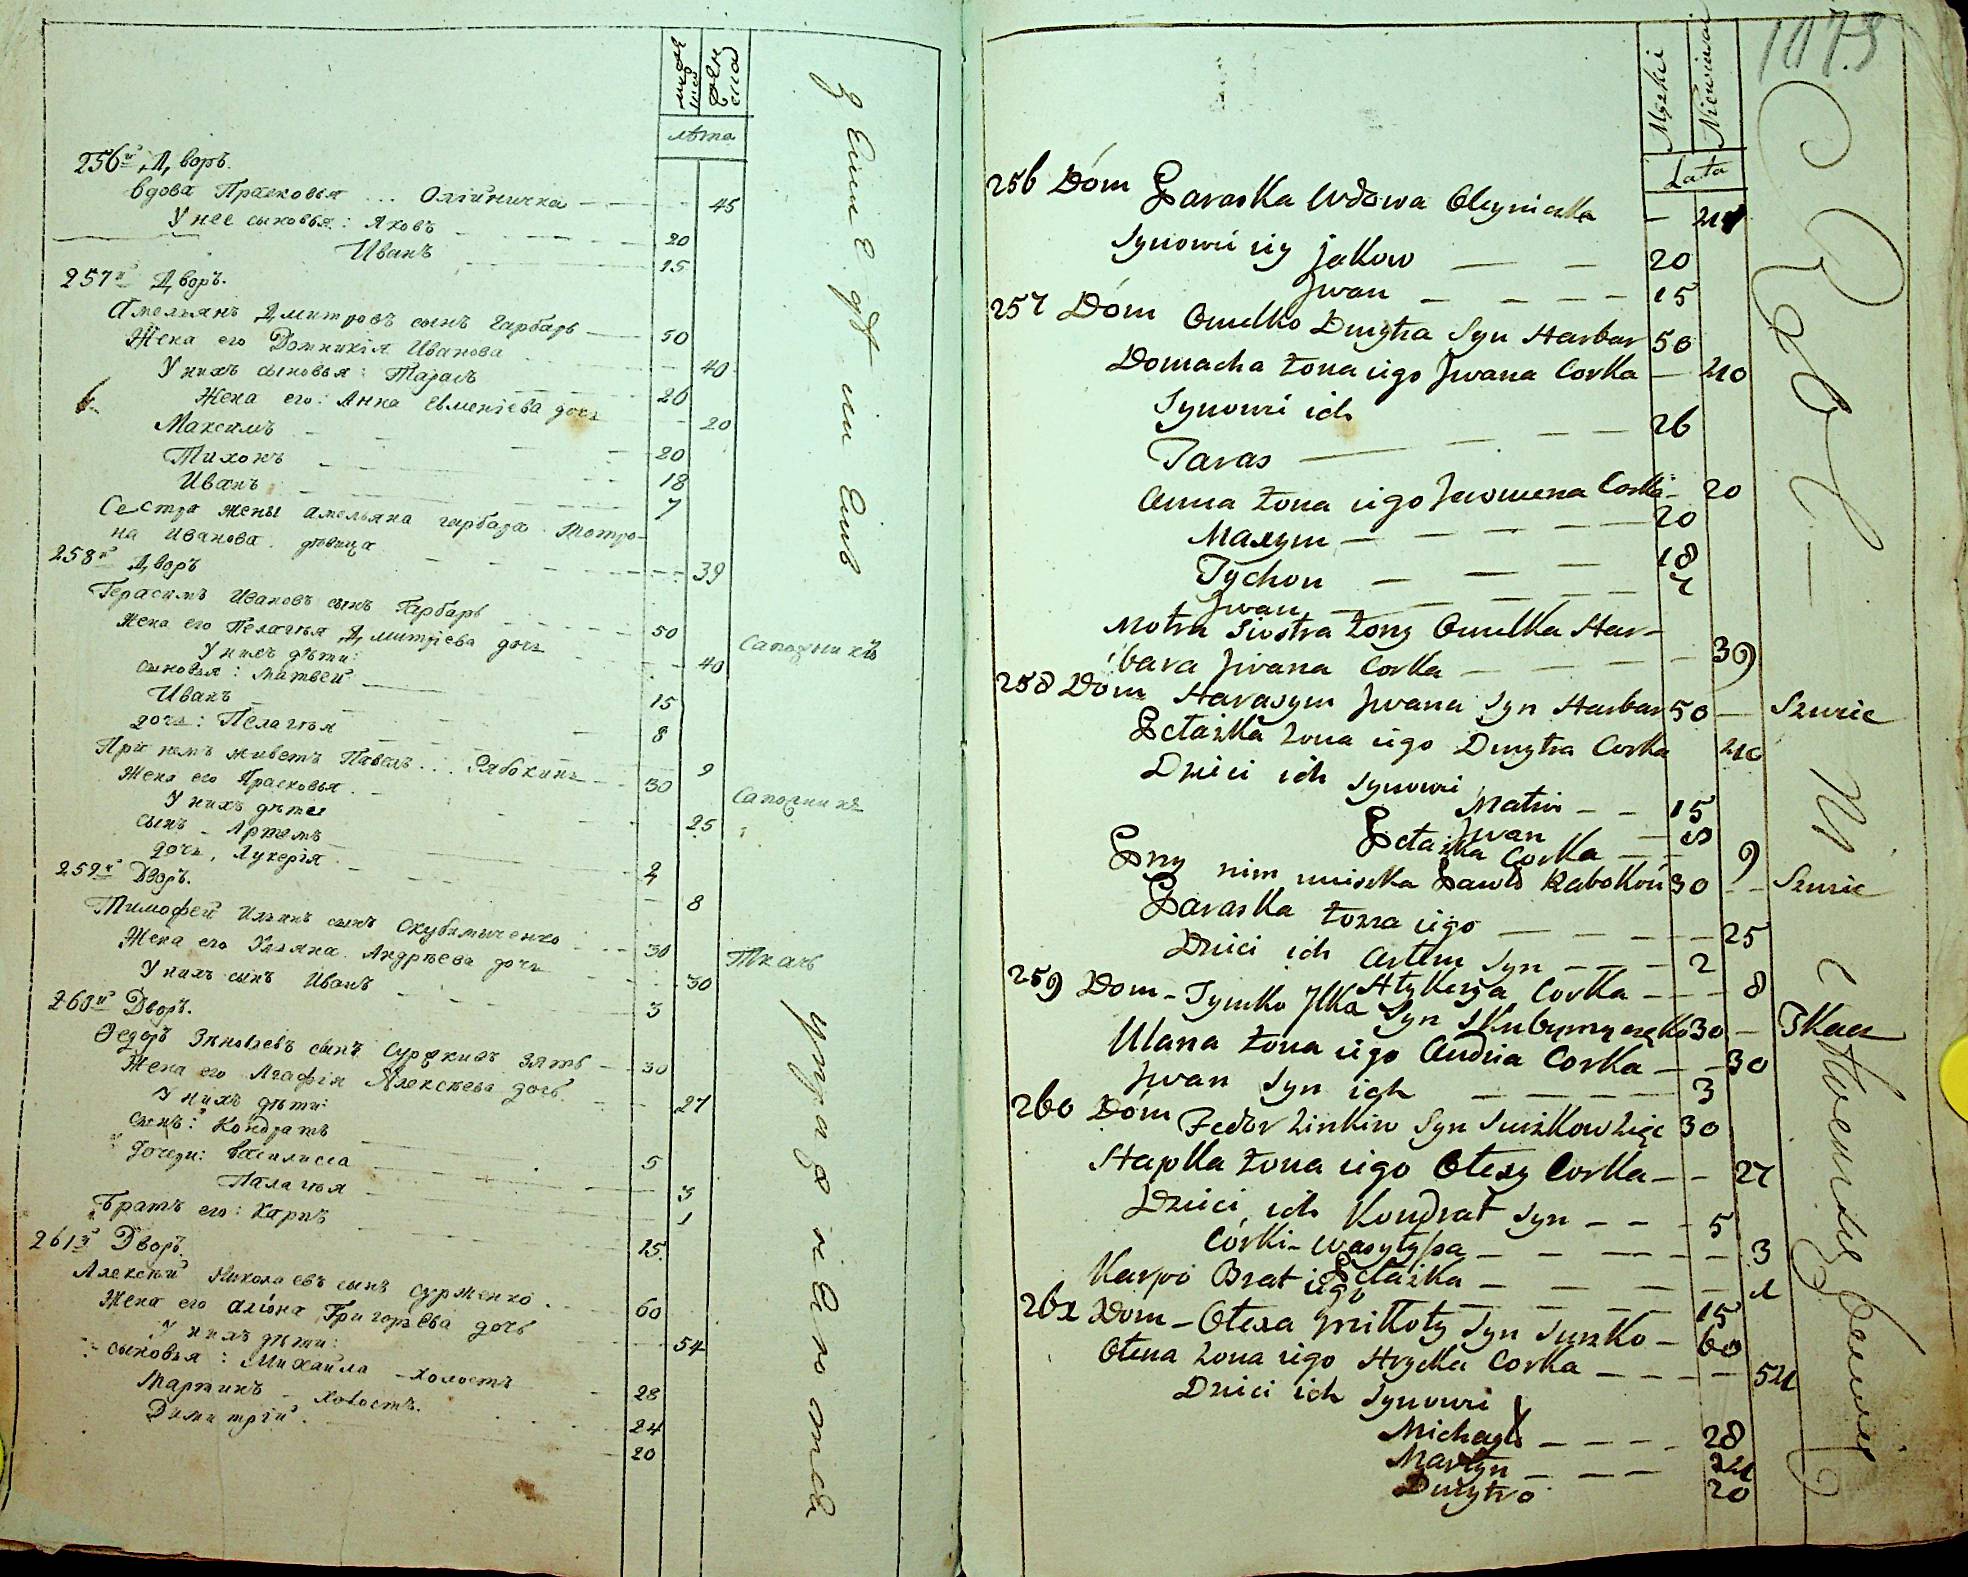 лѣта
256й Дворъ.
вдова Прасковья ... Олійничка 45
У нее сыновья: Яковъ 20
Иванъ 15
257й Дворъ.
Амельянъ Дмитровъ сынъ Гарбарь 50
Жена его Домникія Иванова 40
У нихъ сыновья: Тарасъ 26
Жена его: Анна Евменіева дочь 20
Максимъ 20
Тихонъ 18
Иванъ 7
Сестра жены Амельяна Гарбара Мотро-
на Иванова дѣвица 39
258й Дворъ
Герасимъ Ивановъ сынъ Гарбарь 50 Сапожникъ
Жена его Пелагѣя Дмитріева дочь 40
У нихъ дѣти:
сыновья: Матвей 15
Иванъ 8
дочь: Пелагѣя 9
При немъ живетъ Павелъ ... Рябоконь 30 Сапожникъ
Жена его Прасковья 25
У нихъ дѣти
сынъ Артемъ 2
дочь, Лукерія 8
259й Дворъ.
Тимофей Ильинъ сынъ Скубимыченко 30 Ткачь
Жена его Ульяна Андрѣева дочь 30
У нихъ сынъ Иванъ 3
260й Дворъ.
Ѳедоръ Зѣновіевъ сынъ зять 30
Жена его Агафія Алексѣева дочь 27
У нихъ дѣти:
сынъ: Кондратъ 5
дочери: Василисса 3
Палагѣя 1
Братъ его: Карпъ 15
261й Дворъ.
Алексѣй Николаевъ сынъ Сурженко 60
Жена его Аліона Григорьева дочь 54
У нихъ дѣти:
сыновья: Михайла - холостъ 28
Мартинъ - холостъ. 24
Димитрій 20
Męzkie
Lata
256 Dóm Paraska Wdowa Oleyniczka
Synowi iey Jakow 20
Jwan 15
257 Dóm Omelko Dmytra Syn Harbar 50
Domacha Zona iego Jwana Corka 40
Synowi ich
Taras 26
Anna Zona iego Jwomena Corka 20
Maxym 20
Tychon 18
Jwan 7
Motra Siostra Zony Omelka Har-
bara Jwana Corka 39
258 Dóm Harasym Jwana Syn Harbar 50 Szwic
Pełażka Zona iego Dmytra Corka 40
Dzieci ich Synowi
Matwi 15
Jwan 8
Pełażka Corka 9
Przy nim mieszka Pawło Rabokoń 30 Szwic
Paraska Zona iego 25
Dzieci ich Artem Syn 2
Hłykerya Corka 8
259 Dom - Tymko Jlka Syn Skubymyczęko 30 Tkacz
Ulana Zona iego Andria Corka 30
Jwan Syn ich 3
260 Dóm Fedor Zinkiw Syn Surżkow Zięć 30
Hapka Zona iego Ołexy Corka 27
Dzieci ich Kondrat Syn 5
Córki - Wasyłyssa 3
Pełażka 1
Karpo Brat iego 15
261 Dom - Ołexa Mikoły Syn Surżko 60
Ołena Zona iego Hrycka Corka 54
Dzieci ich Synowi
Michayło 28
Martyn 24
Dmytro 20